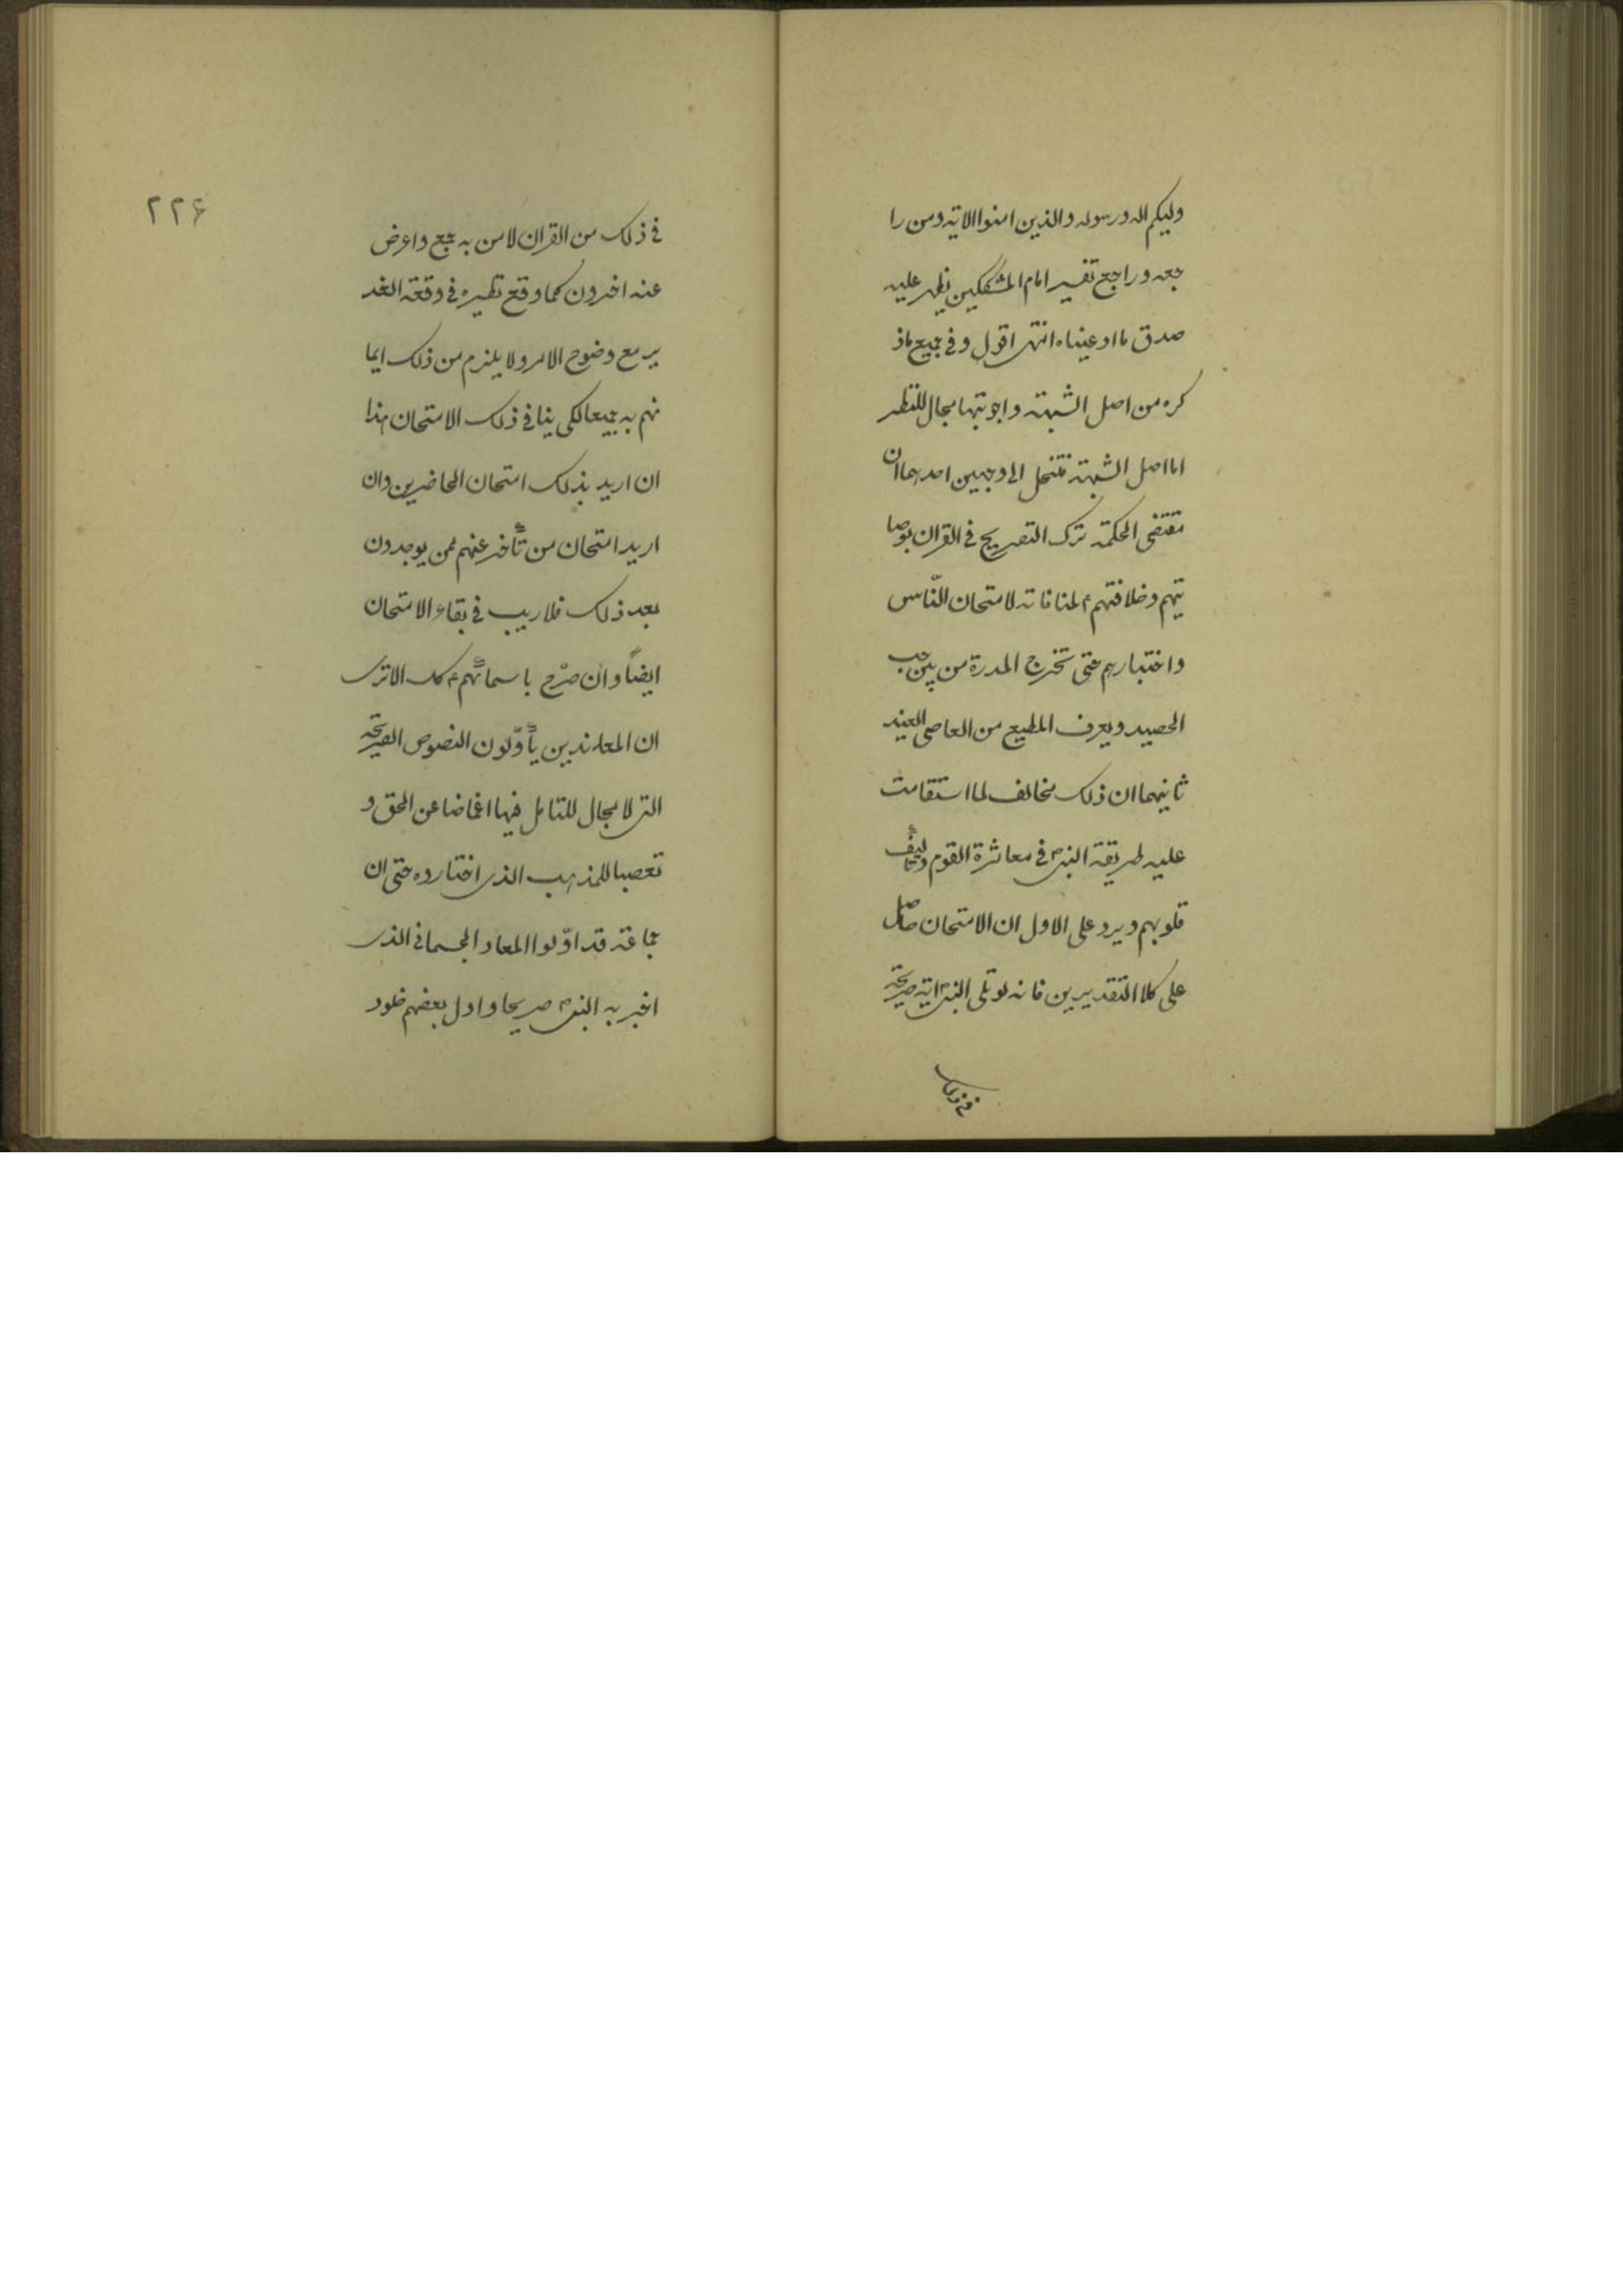 وليكم الله ورسوله والذين امنوا الاية ومن را
جعه وراجع تفسير امام المشككين يظهر عليه
صدق ما ادعيناه انتهى اقول وفي جميع ماذ
كره من اصل الشبهة واجوبتها مجال للنظر
اما اصل الشبهة فتنحل الى وجهين احدهما ان
مقتضى الحكمة ترك التصريح في القران بوصا
يتهم وخلافتهم ع لمنافاته لامتحان النّاس
واختبارهم حتى تخرج المدرة من بين حب
الحصيد ويعرف المطيع من العاصى العنيد
ثانيهما ان ذلك مخالف لما استقامت
عليه طريقة النبى ص في معاشرة القوم وتاليف
قلوبهم ويرد على الاول ان الامتحان حاصل
على كلا التقديرين فانه لو تلى النبى ص اية صريحة
في ذلك
٢٢۶
في ذلك من القران لامن به جمع واعرض
عنه اخرون كما وقع نظيره في وقعة الغد
ير مع وضوح الامر ولا يلزم من ذلك ايما
نهم به جميعا لكى ينافي ذلك الامتحان هذا
ان اريد بذلك امتحان الحاضرين وان
اريد امتحان من تأخر عنهم ممن يوجدون
بعد ذلك فلا ريب في بقاء الامتحان
ايضاً وان صرّح باسمائهم ع كك الا ترى
ان المعاندين يأوّلون النصوص الصريحة
التى لا مجال للتامل فيها اغماضا عن الحق و
تعصبا للمذهب الذى اختاروه حتى ان
جماعة قد اوّلوا المعاد الجسمانى الذى
اخبر به النبى ص صريحا واول بعضهم خلود